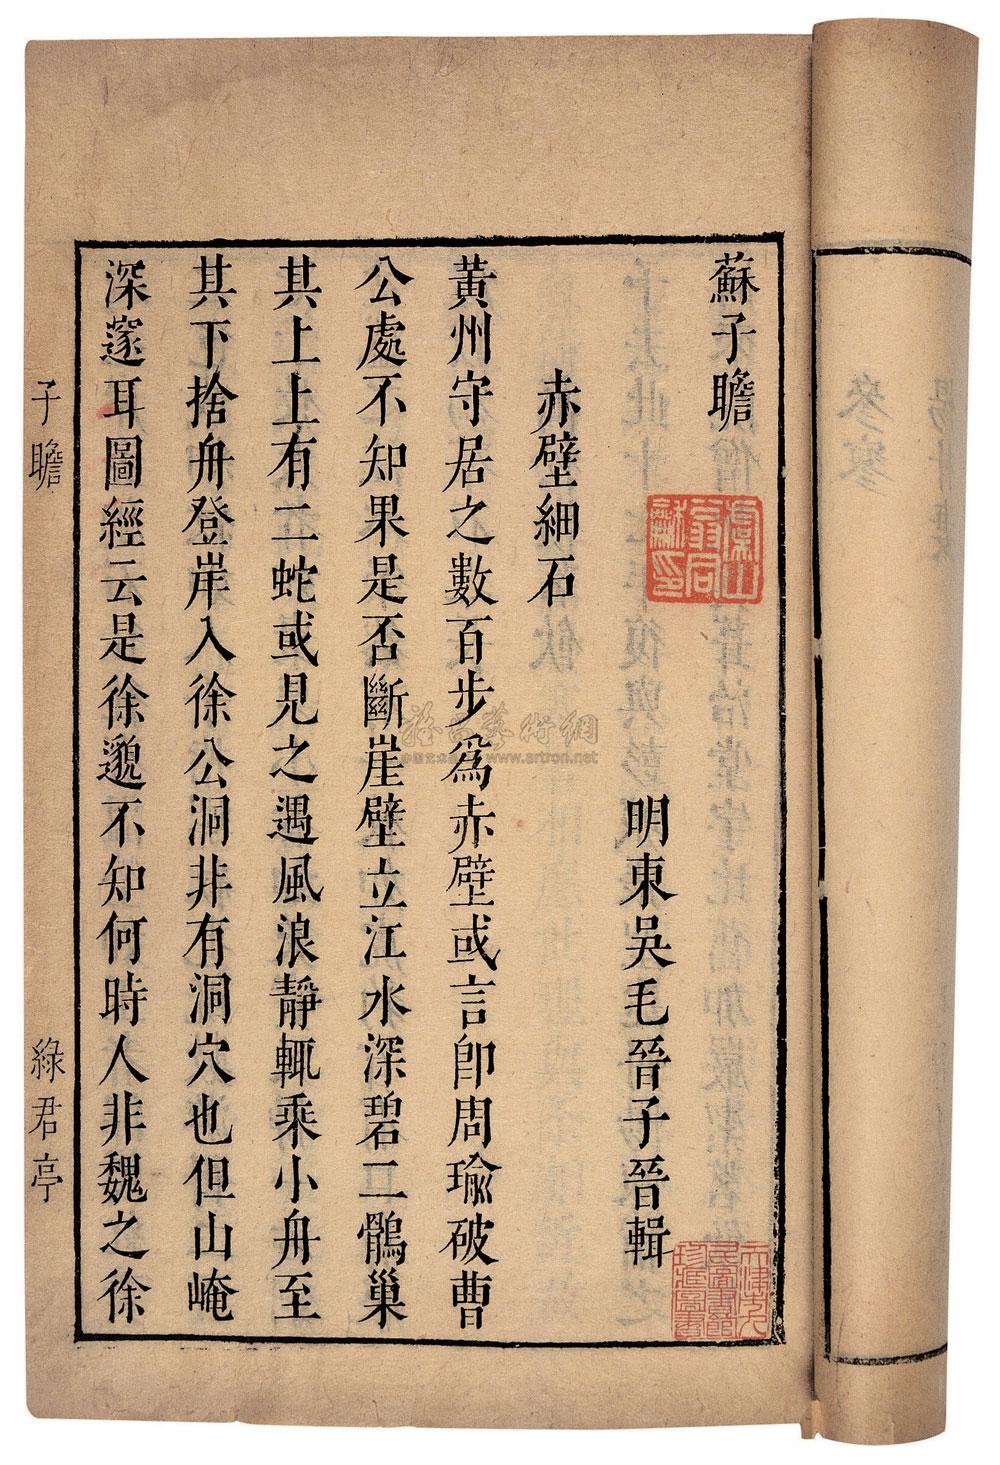 蘇子瞻
明東吳毛晉子晉輯
赤壁細石
黃州守居之數百步為赤壁或言卽周瑜破曹
公處不知果是否斷崖壁立江水深碧二鶻巢
其上上有二蛇或見之遇風浪靜輒乘小舟至
其下捨舟登岸入徐公洞非有洞穴也但山崦
深邃耳圖經云是徐邈不知何時人非魏之徐
子瞻
綠君亭
www.artron.net